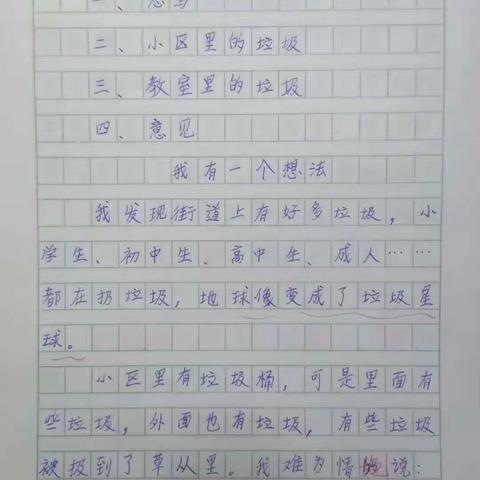 二、小区里的垃圾
三、教室里的垃圾
四、意见
我有一个想法
我发现街道上有好多垃圾，小
学生、初中生、高中生、成人……
都在扔垃圾，地球像变成了垃圾星
球。
小区里有垃圾桶，可是里面有
些垃圾，外面也有垃圾，有些垃圾
被扱到了草从里。我难为情地说：